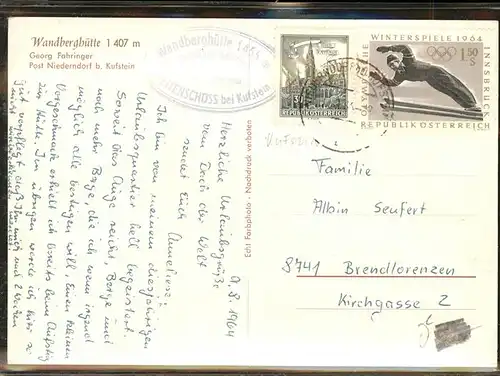 Wandberghütte 1 407 m
Georg Fahringer
Post Niederndorf b. Kufstein
Wandberghütte 1464 m
bei Kufstein
REPUBLIK ÖSTERREICH
IX. OLYMPISCHE WINTERSPIELE 1964 INNSBRUCK
1.50
S
REPUBLIK ÖSTERREICH
Echt Farbphoto - Nachdruck verboten
9.8.1964
Herzliche Urlaubsgrüße
vom Dach der Welt
sendet Euch Anneliese!
Ich bin von meinem diesjährigen
Urlaubsquartier hell begeistert.
Soweit das Auge reicht, Berge und
noch mehr Berge, die ich wenn irgend
möglich alle besteigen will. Einen kleinen
Vorgeschmack erhielt ich bereits beim Aufstieg
zur Hütte. Im übrigen werde ich hier so
gut verpflegt, daß Ihr mich nach 2 Wochen
nicht wiedererkennen werdet.
Familie
Albin Seufert
8741 Brendlorenzen
Kirchgasse 2